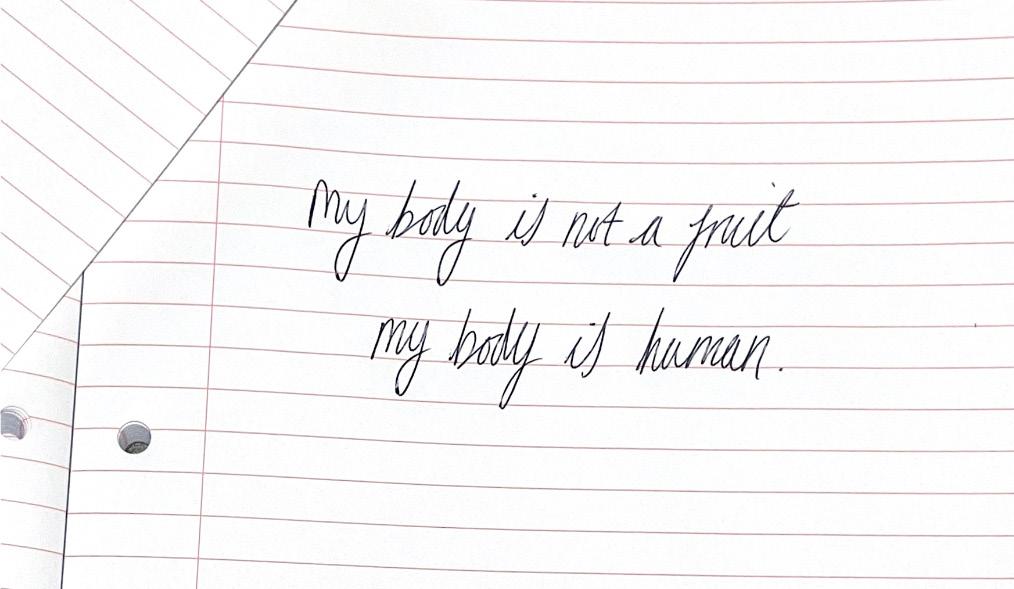 my body is not a fruit
my body is human.